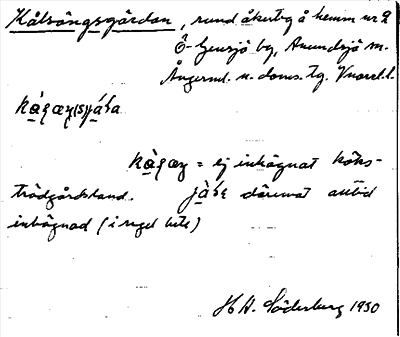 Kålsängsgärdan, rund åkerteg å hemm nr 2
Ö-Gensjö by, Anundsjö sn.
Ångerml. n. doms. tg. Vnorrl. l.
= ej inhägnat köks-
trädgårdsland. däremot alltid
inhägnad (i regel bete)
H. A. Söderberg 1930